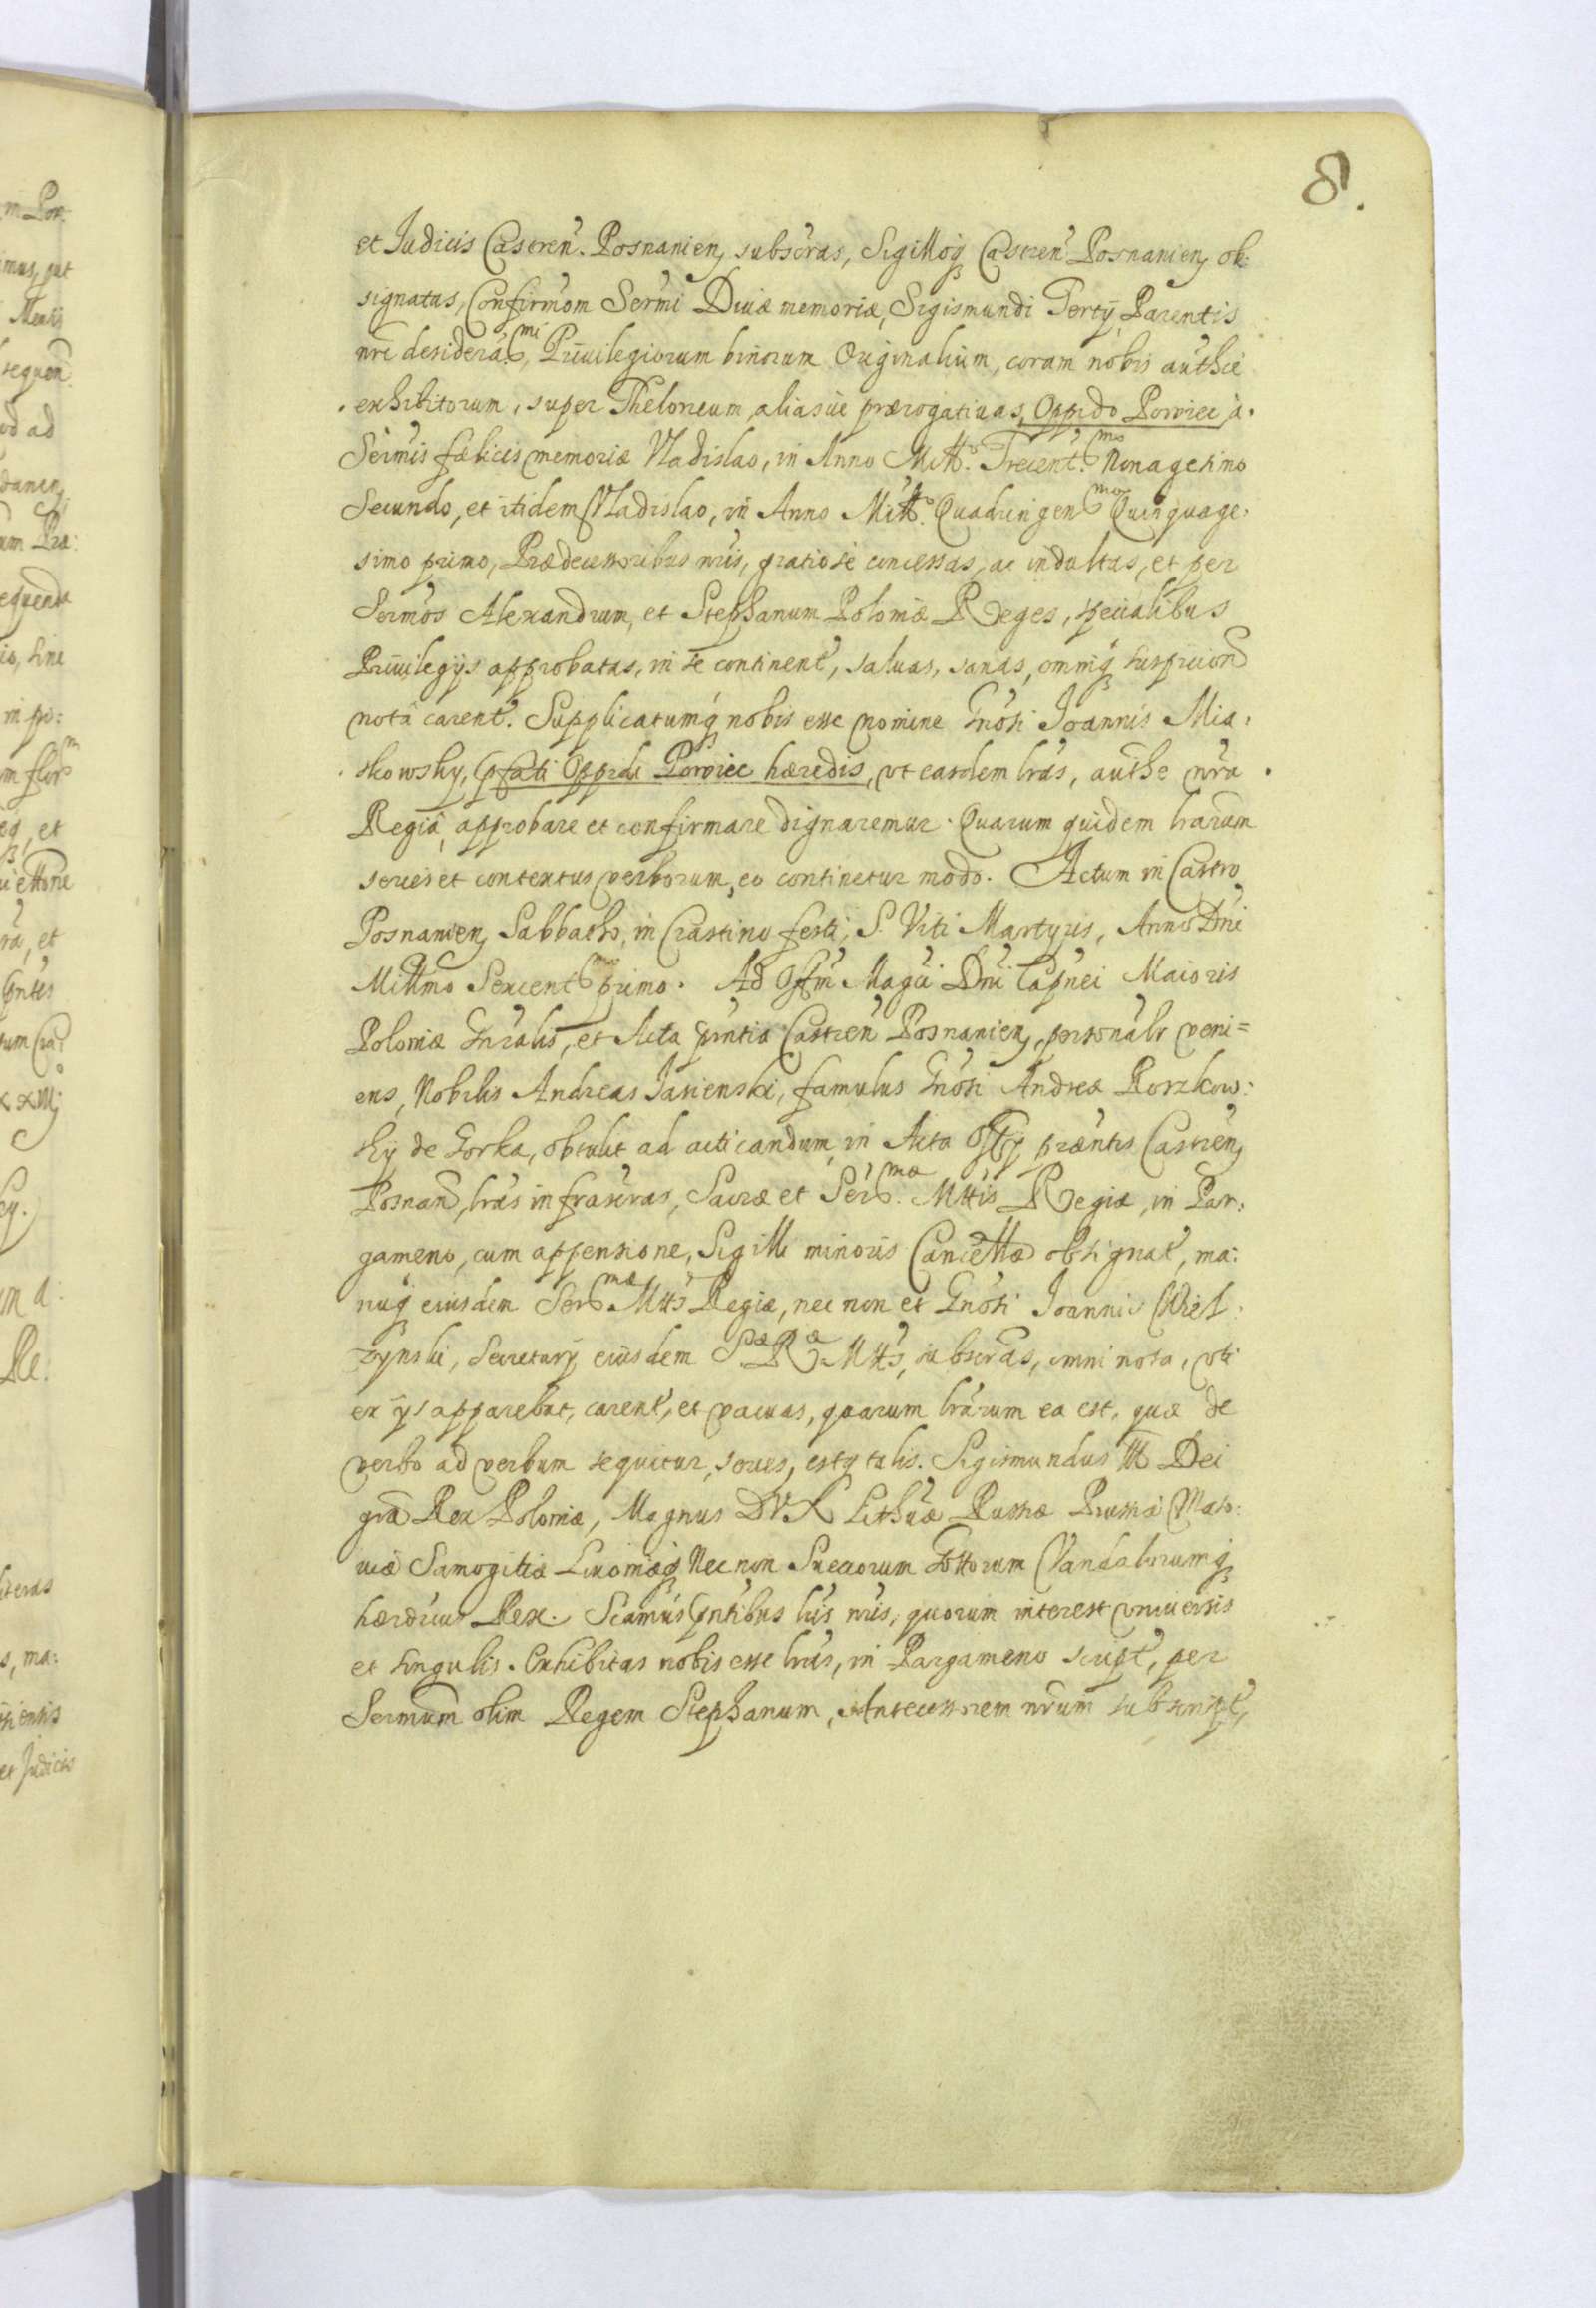 8.
et Judicis Castren̄. Posnanien, subscras, Sigilloq Castren̄ Posnanien, ob:
signatas, Confirm̄om Serm̄i Diuæ memoriæ, Sigismundi Tertÿ Parentis
nr̄i desidera^mi, Priuilegiorum binorum Originalium, coram nobis authce
exhibitorum, super Theloneum aliasue prærogatiuas, Oppido Powiec, a
Serm̄is fœlicis memoriæ Vladislao, in Anno Mill^o. Trecent^mo Nonagesimo
Secundo, et itidem Vladislao, in Anno Mill^o. Quadringen^mo Quinquage:
simo primo, Prædecessoribus nr̄is, gratiose concessas, ac indultas, et per
Serm̄os Alexandrum, et Stephanum Poloniæ Reges, specialibus
Priuilegÿs approbatas, in se continent̄, saluas, sanas, omniq suspicion
nota carent̄. Supplicatumq nobis esse nomine Gn̄osi Joannis Mia:
skowsky, pfati Oppidi Powiec hæredis, vt easdem lr̄as, authe nr̄a
Regia, approbare et confirmare dignaremur. Quarum quidem lrarum
series et contextus verborum, eo continetur modo. Actum in Castro
Posnanien, Sabbatho, in Crastino festi, S. Viti Martyris, Anno Dn̄i
Millmo Sexcent^mo primo. Ad Off̄m Magci Dn̄i Capnei Maioris
Poloniæ Gn̄ralis, et Acta pn̄tia Castren̄ Posnanien, personalr veni=
ens, Nobilis Andreas Jasienski, famulus Gn̄osi Andreæ Roszkow:
sky de Gorka, obtulit ad acticandum, in Acta Off̄ÿ præntis Castren̄,
Posnan, lr̄as infrascr̄as, Sacræ et Ser^mæ. Mttis Regiæ, in Par:
gameno, cum appensione, Sigilli minoris Cancellæ obsignat̄, ma:
nuq eiusdem Ser^mæ. Mttis Regiæ, nec non et Gn̄osi Joannis Wiel:
zynski, Secretarÿ eiusdem S^æR^æ. Mttis, subscr̄as, omni nota, vti
ex ÿs apparebat, carent̄, et vacuas, quarum lr̄arum ea est, quæ de
verbo ad verbum sequitur, series, estq talis. Sigismundus III Dei
gra Rex Poloniæ, Magnus DVX Lithuæ Russiæ Prussiæ Maso:
uiæ Samogitiæ Liuoniæq Nec non Sueccorum Gottorum Vandalorumq
hæredrius Rex. Scamus pn̄tibus lr̄is nr̄is, quorum interest vniuersis
et singulis. Exhibitas nobis esse lr̄as, in Pargameno script̄, per
Sermum olim Regem Stephanum, Antecessorem nr̄um subscript̄,